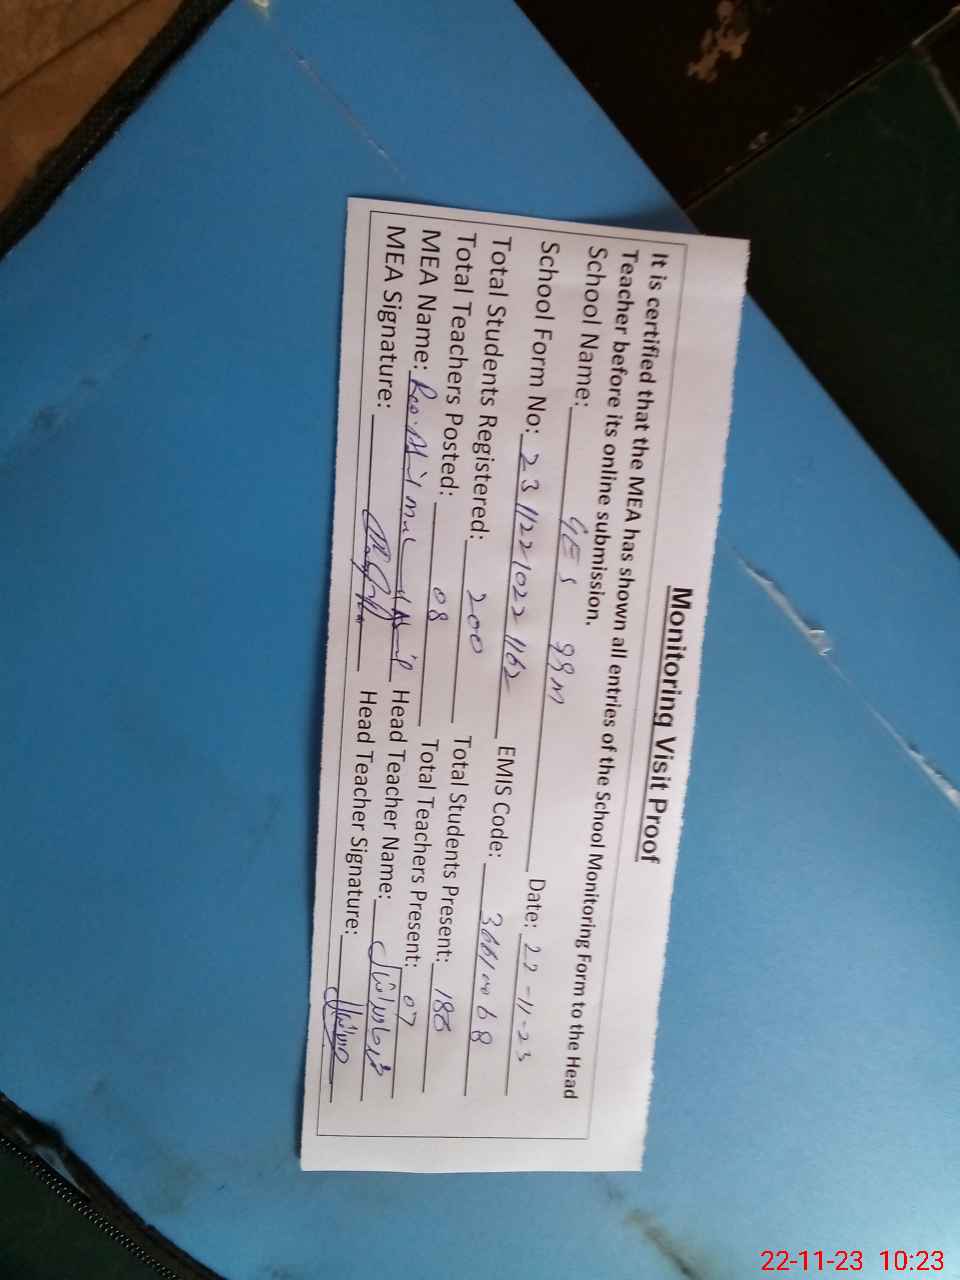 Monitoring Visit Proof
It is certified that the MEA has shown all entries of the School Monitoring Form to the Head
Teacher before its online submission.
School Name: GES 99M Date: 22-11-23
School Form No: 23 1122 1022 1162 EMIS Code:
Total Students Registered: 200 Total Students Present: 186
Total Teachers Posted: 08 Total Teachers Present: 07
MEA Name: Head Teacher Name:
MEA Signature: Head Teacher Signature:
22-11-23 10:23